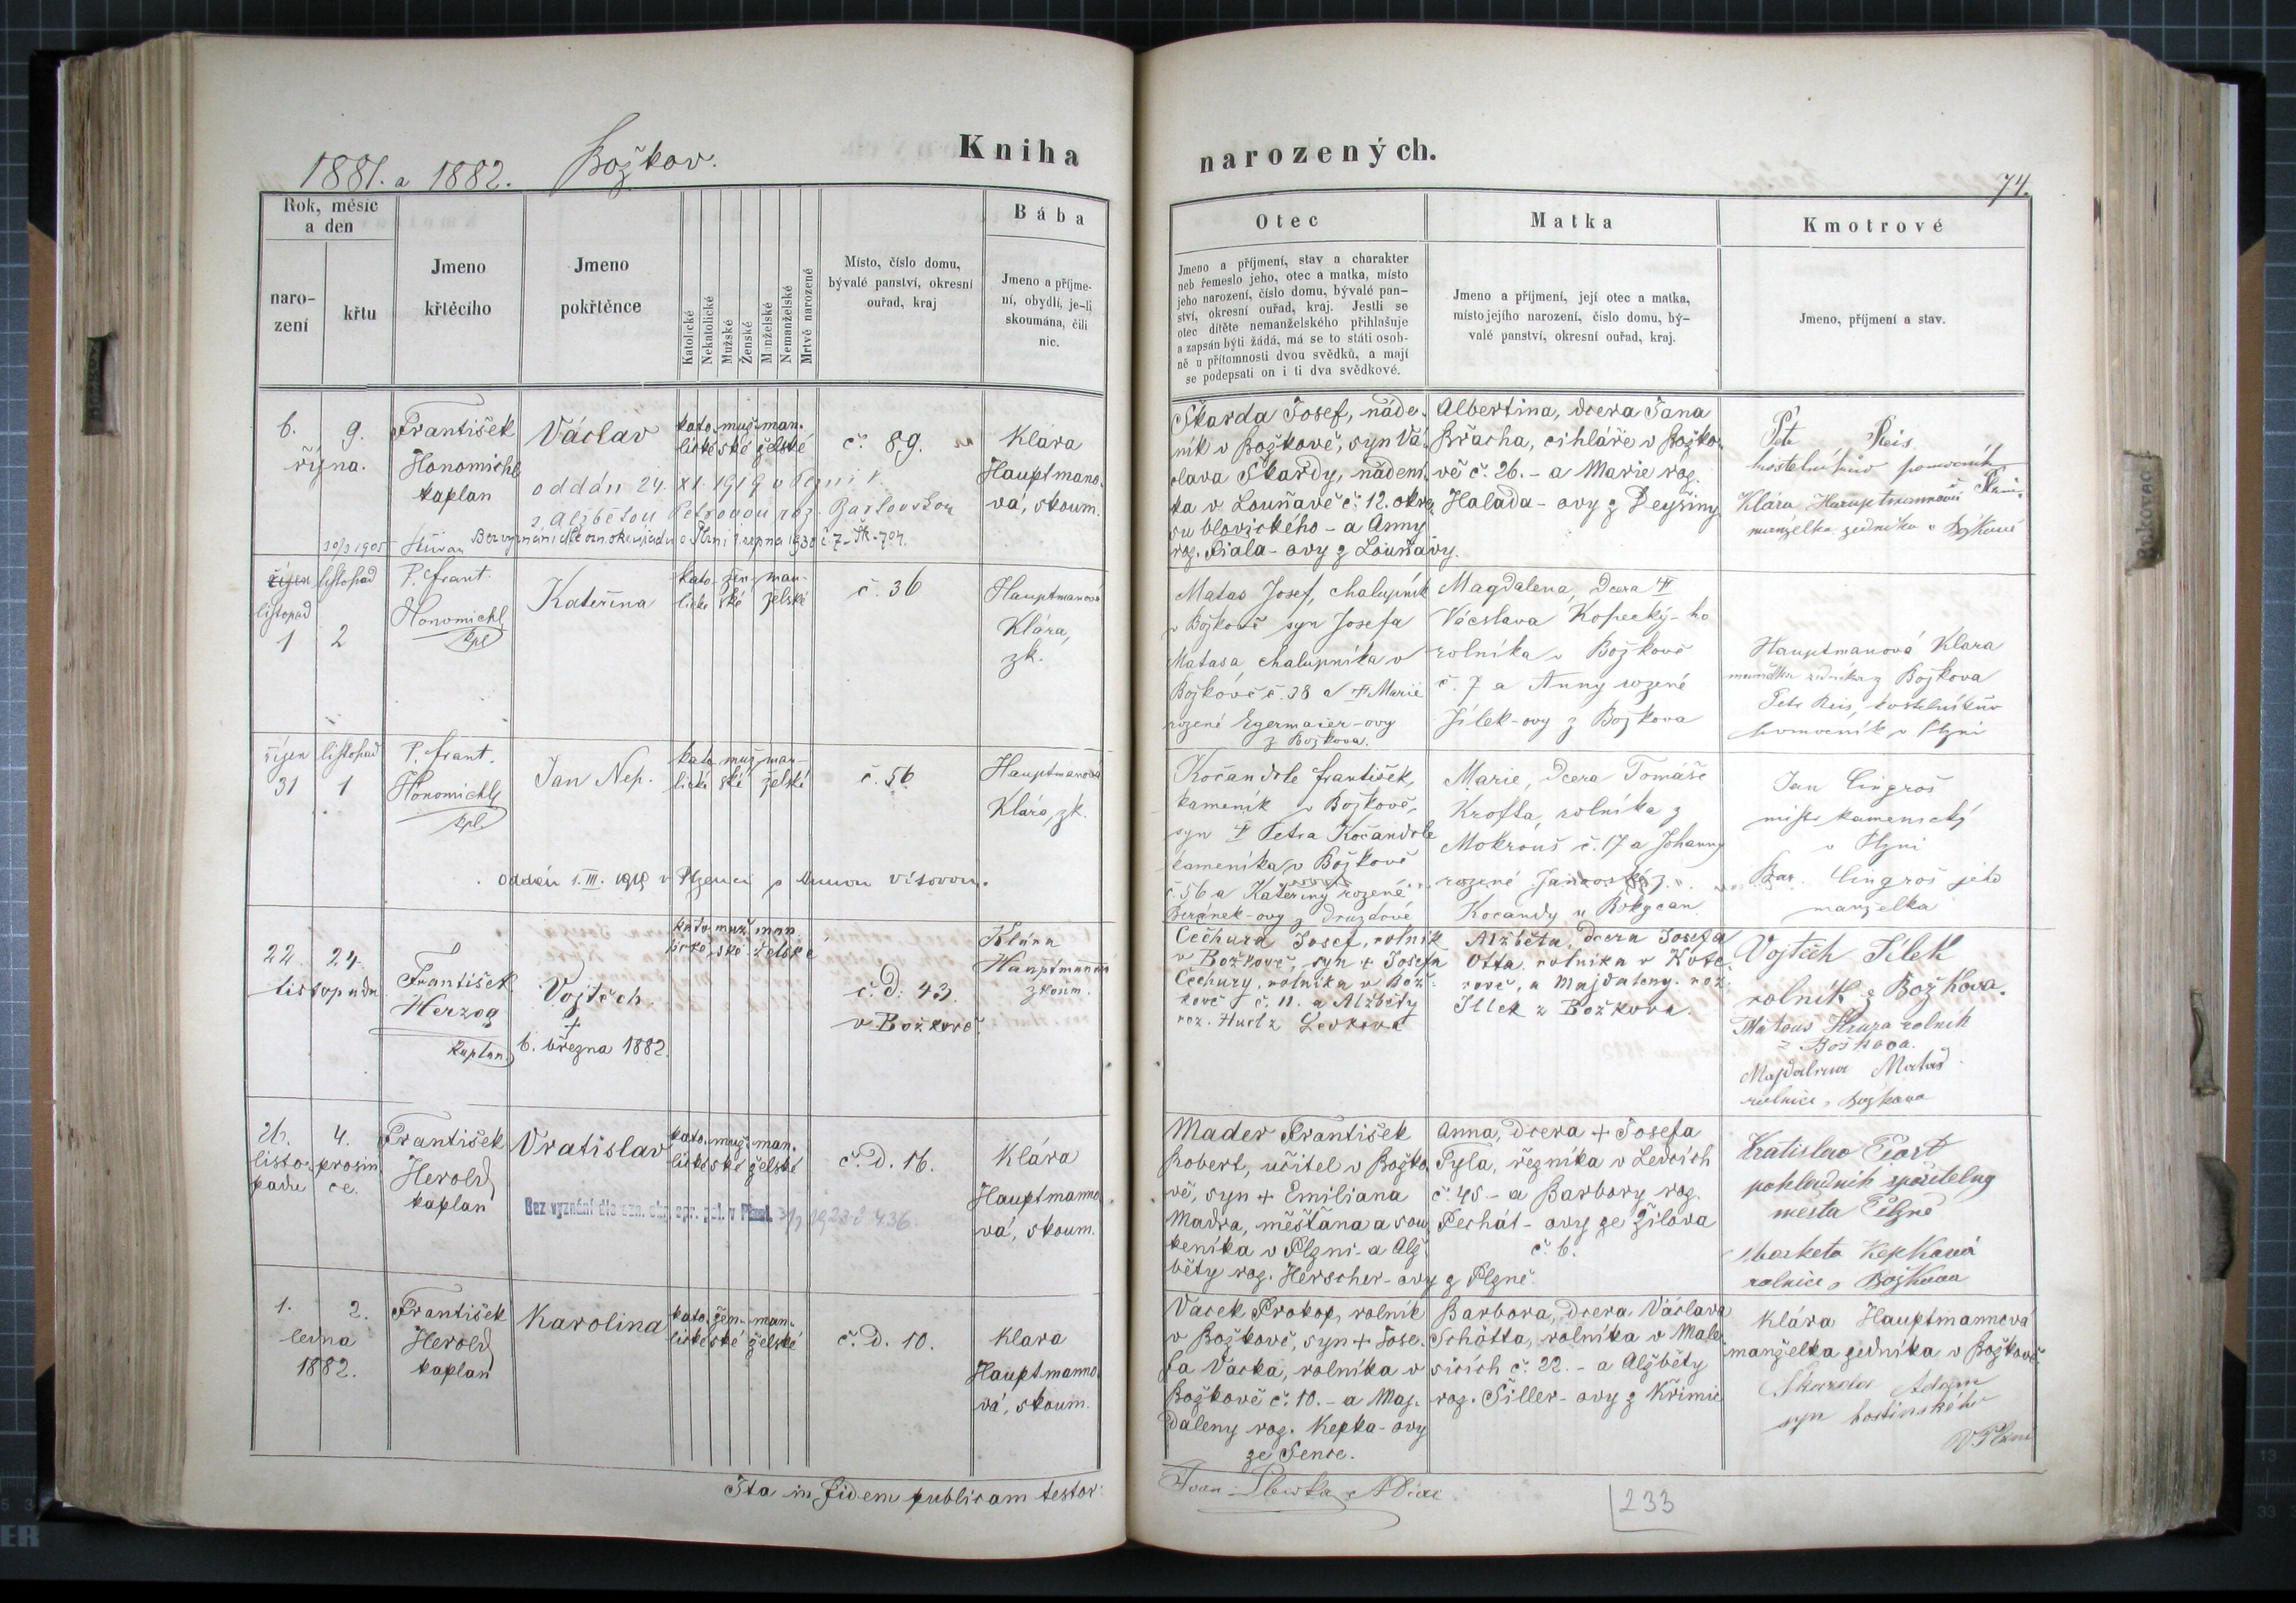 1881. a 1882. Božkov.
Kniha
narozených.
74.
Rok, měsíc
a den
naro-
zení
křtu
Jmeno
křtěcího
Jmeno
pokřtěnce
Katolické
Nekatolické
Mužské
Ženské
Manželské
Nemanželské
Mrtvě narozené
Místo, číslo domu,
bývalé panství, okresní
ouřad, kraj
Bába
Jmeno a příjme-
ní, obydlí, je-li
skoumána, čili
nic.
Otec
Jmeno a příjmení, stav a charakter
neb řemeslo jeho, otec a matka, místo
jeho narození, číslo domu, bývalé pan-
ství, okresní ouřad, kraj. Jestli se
otec dítěte nemanželského přihlašuje
a zapsán býti žádá, má se to státi osob-
ně u přítomnosti dvou svědků, a mají
se podepsati on i ti dva svědkové.
Matka
Jmeno a příjmení, její otec a matka,
místo jejího narození, číslo domu, bý-
valé panství, okresní ouřad, kraj.
Kmotrové
Jmeno, příjmení a stav.
6. 9.
října.
František
Honomichl
kaplan
Václav
oddán 24. XI. 1919 v Plzni
s Alžbětou Petrovou roz.
kato- muž- man-
lické ské želské
č. 89.
Klára
Hauptmano-
vá, skoum.
Škarda Josef, náde-
ník v Božkově, syn Vá-
clava Škardy, nádení-
ka v Louňavě č. 12. okre-
su blovického - a Anny
roz. Fiala-ovy z Louňavy.
Albertina, dcera Jana
Břacha, cihláře v Božko-
vě č. 26. - a Marie roz.
Halada-ovy z Deyšiny
Petr Reis
kostelníkův pomocník
Klára Hauptmannová
manželka zedníka v Božkově
říjen listopad
listopad
1 2
P. Frant.
Honomichl
kpl
Kateřina
kato- žen- man-
lické ské želské
č. 36
Hauptmanová
Klára,
zk.
Matas Josef, chalupník
v Božkově syn Josefa
Matasa chalupníka v
Božkově č. 38 a † Marie
rozené Egermaier-ovy
z Božkova.
Magdalena, dcera †
Václava Kopecký-ho
rolníka v Božkově
č. 7 a Anny rozené
Jílek-ovy z Božkova
Hauptmanová Klara
manželka zedníka z Božkova
Petr Reis, kostelníkův
pomocník v Plzni
říjen listopad
31 1
P. Frant.
Honomichl
kpl
Jan Nep.
kato- muž- man-
lické ské želské
č. 56
Hauptmanová
Klára, zk.
oddán 1. III. 1919 v Plzenci s Annou Vítovou.
Kočandrle František,
kameník v Božkově,
syn † Petra Kočandrle
kameníka v Božkově
č. 56 a Kateřiny rozené
Beránek-ovy z Druzdové
Marie, dcera Tomáše
Krofta, rolníka z
Mokrouš č. 17 a Johanny
rozené
Kocandy u Rokycan
Jan Cingroš
mistr kamenický
v Plzni
Bar. Cingroš jeho
manželka
22. 24.
listopadu
František
Herzog
kaplan
Vojtěch.
†
6. března 1882.
kato- muž- man-
lické ské želské
č. d. 43.
v Božkově
Klára
Hauptmanová
zkoum.
Čechura Josef, rolník
v Božkově, syn † Josefa
Čechury, rolníka v Bož-
kově č. 11. a Alžběty
roz. Hudz Ledkova
Alžběta, dcera Josefa
Otta, rolníka v Kote-
rově, a Majdaleny roz.
Jílek z Božkova.
Vojtěch Jílek
rolník z Božkova.
Matouš rolník
z Božkova.
Majdalena Matas
rolnice z Božkova
26. 4.
listo- prosin-
padu ce.
František
Herold
kaplan
Vratislav
kato- muž- man-
lické ské želské
č. d. 16.
Klára
Hauptmanno-
vá, skoum.
Mader František
Robert, učitel v Božko-
vě, syn † Emiliana
Madra, měšťana a sou-
keníka v Plzni - a Alž-
běty roz. Herscher-ovy z Plzně.
Anna, dcera † Josefa
Tyla, řezníka v Ledcích
č. 45 - a Barbory roz.
Pechát-ovy ze Žilova
č. 6.
pokladník spořitelny
města Plzně
Marketa Kepková
rolnice z Božkova
1. 2.
ledna
1882.
František
Herold
kaplan
Karolina
kato- žen- man-
lické ské želské
č. d. 10.
Klára
Hauptmanno-
vá, skoum.
Vacek Prokop, rolník
v Božkově, syn † Jose-
fa Vacka, rolníka v
Božkově č. 10. - a Maj-
daleny roz. Kepka-ovy
ze Sence.
Barbora, dcera Václava
Schötta, rolníka v Male-
sicích č. 22. - a Alžběty
roz. Šiller-ovy z Křimic
Klára Hauptmannová
manželka zedníka v Božkově
Škarda Adam
syn hostinského
v Plzni
Ita in fidem publicam testor:
233